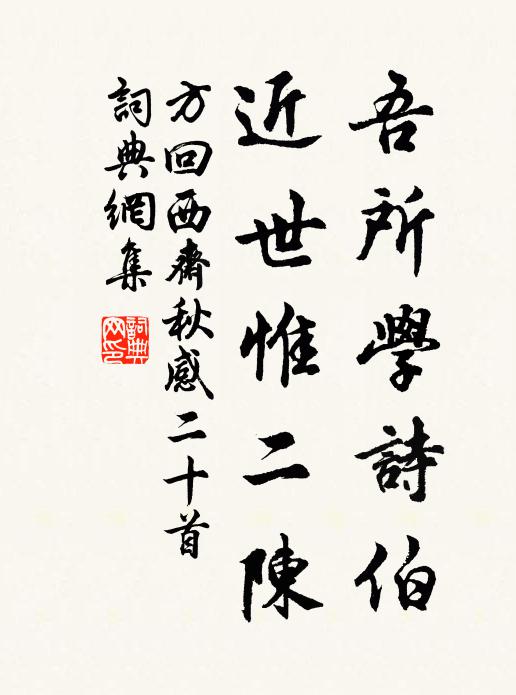 吾所學詩伯
近世惟二陳
方回西齋秋感二十首
詞典網集
詞典網印